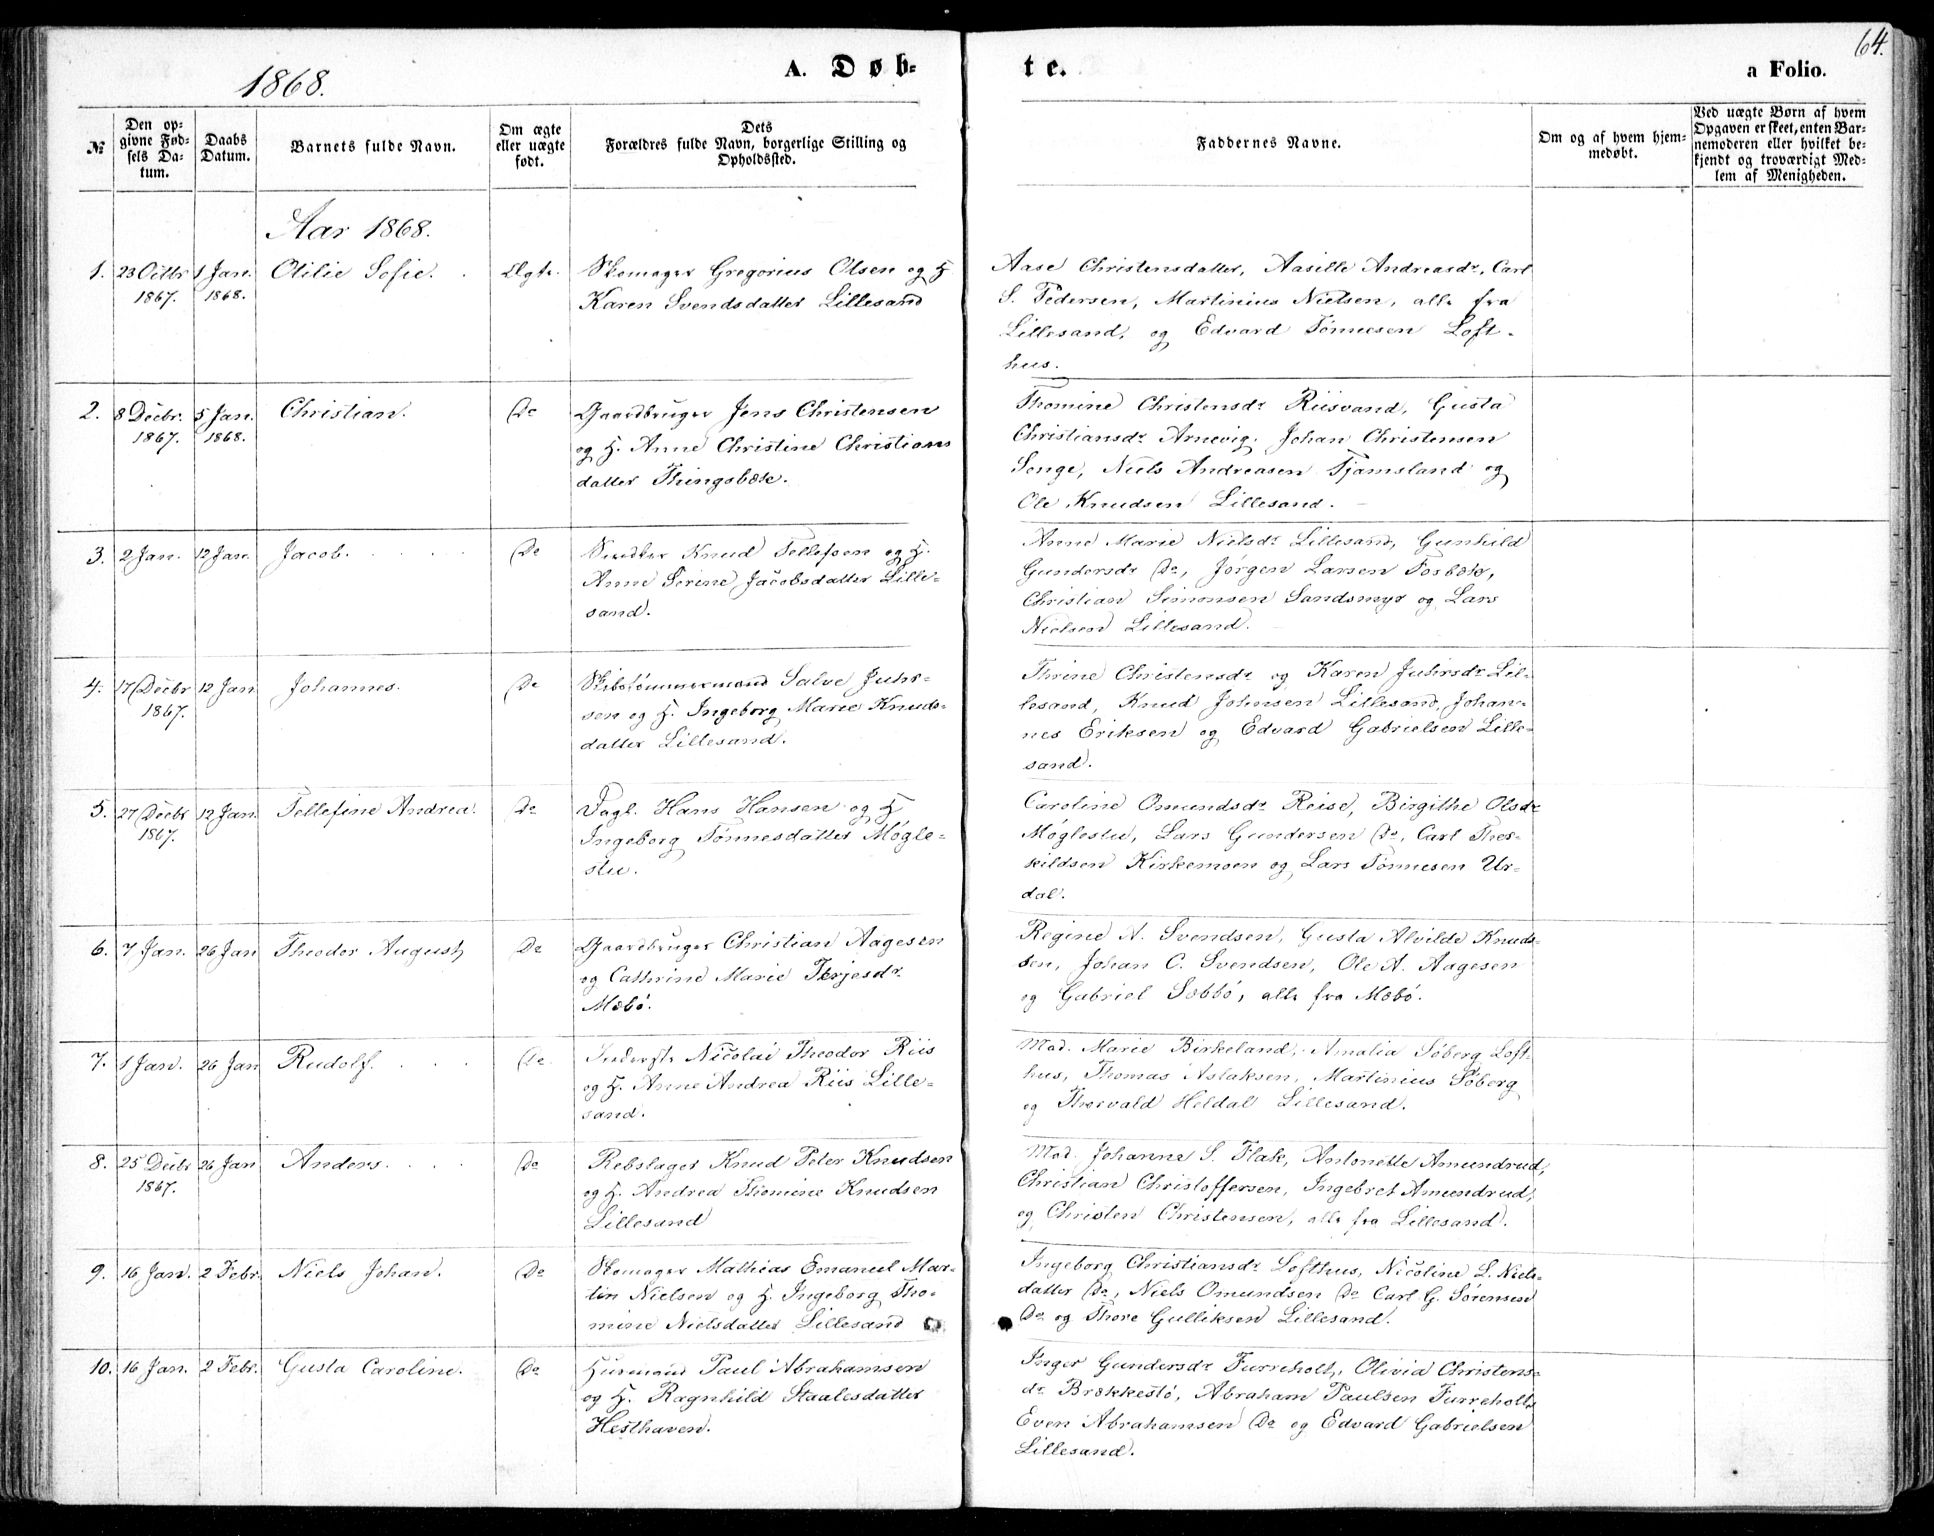 64.
1868.
A. Døb-
te.
a Folio.
№
Den op-
givne Fød-
sels Da-
tum.
Daabs
Datum.
Barnets fulde Navn.
Om ægte
eller uægte
født.
Dets
Forældres fulde Navn, borgerlige Stilling og
Opholdssted.
Faddernes Navne.
Om og af hvem hjem-
medøbt.
Ved uægte Børn af hvem
Opgaven er skeet, enten Bar-
nemoderen eller hvilket be-
kjendt og troværdigt Med-
lem af Menigheden.
Aar 1868.
1. 23 Octbr 1 Jan. Otilie Sofie. Ægte. Skomager Gregorius Olsen og H.
1867. 1868. Karen Svendsdatter Lillesand
Aase Christensdatter, Aasille Andreasdr, Carl
S. Pedersen, Martinius Nielsen, alle fra
Lillesand, og Edvard Tönnesen Loft-
hus.
2. 8 Decbr. 5 Jan. Christian. Do Gaardbruger Jens Christensen
1867. 1868. og H. Anne Christine Christians
datter Thingsbæk.
Thomine Christensdr Riisvand, Gusta
Christiansdr Arnevig, Johan Christensen
Songe, Niels Andreasen Tjamsland og
Ole Knudsen Lillesand.
3. 2 Jan. 12 Jan. Jacob. Do Snedker Knud Tellefsen og H.
Anne Serine Jacobsdatter Lille-
sand.
Anne Marie Nielsdr Lillesand, Gunhild
Gundersdr Do, Jörgen Larsen Fosbæk,
Christian Simonsen Sandsmyr og Lars
Nielsen Lillesand.
4. 17 Decbr 12 Jan Johannes. Do Skibstömmermand Salve Juhr-
1867. sen og H. Ingeborg Marie Knuds-
datter Lillesand.
Thrine Christensdr og Karen Juhrsdr Lil-
lesand, Knud Johnsen Lillesand, Johan-
nes Eriksen og Edvard Gabrielsen Lille-
sand.
5. 27 Decbr 12 Jan. Tellefine Andrea. Do Dagl. Hans Hansen og H
1867. Ingeborg Tönnesdatter Mögle-
stu.
Caroline Omundsdr Reise, Birgithe Olsdr
Möglestu, Lars Gundersen Do, Carl Thes-
kildsen Kirkemoen og Lars Tönnesen Ur-
dal.
6. 7 Jan. 26 Jan Theodor August Do Gaardbruger Christian Aagesen
og Cathrine Marie Terjesdr.
Mæbö.
Regine A. Svendsen, Gusta Alvilde Knud-
sen, Johan C. Svendsen, Ole A. Aagesen
og Gabriel Sæbbö, alle fra Mæbö.
7. 1 Jan. 26 Jan Rudolf. Do. Nicolai Theodor Riis
og H. Anne Andrea Riis Lille-
sand.
Mad. Marie Birkeland, Amalia Söberg Loft-
hus, Thomas Aslaksen, Martinius Söberg
og Thorvald Heldal Lillesand.
8. 25 Decbr 26 Jan Anders. Do Rebslager Knud Peter Knudsen
1867. og H. Andrea Thomine Knudsen
Lillesand
Mad. Johanne S. Flak, Antonette Amundrud,
Christian Christoffersen, Ingebret Amundrud,
og Christen Christensen, alle fra Lillesand.
9. 16 Jan. 2 Febr. Niels Johan. Do Skomager Mathias Emanuel Mar-
tin Nielsen og H. Ingeborg Tho-
mine Nielsdatter Lillesand
Ingeborg Christiansdr Lofthus, Nicoline L. Niels-
datter Do, Niels Omundsen Do Carl G. Sörensen
Do og Thore Gulliksen Lillesand.
10. 16 Jan. 2 Febr. Gusta Caroline. Do Huusmand Paul Abrahamsen
og H. Ragnhild Staalesdatter
Hesthaven.
Inger Gundersdr Furreholt, Olivia Christens-
dr Brækkestö, Abraham Paulsen Furreholt,
Even Abrahamsen Do og Edvard Gabrielsen
Lillesand.